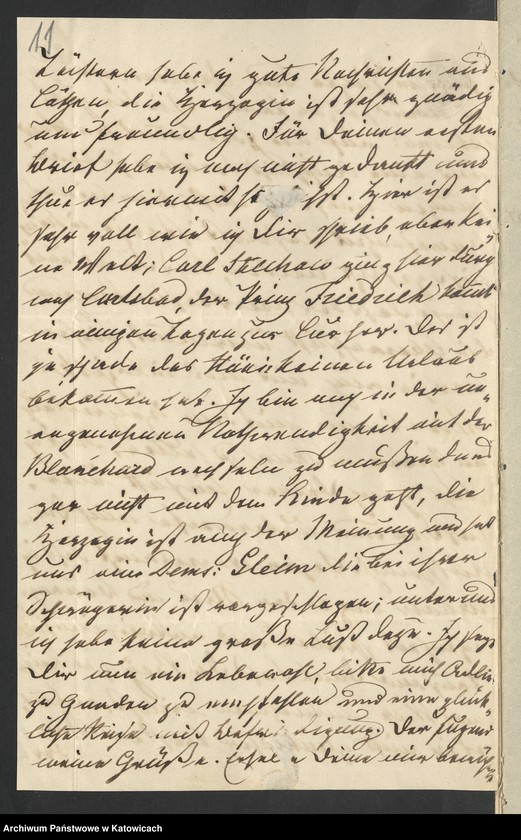 11
habe ich gute Nachrichten aus
die Herzogin ist sehr gnädig
und freundlich. Für Deinen ersten
Brief habe ich noch nicht gedankt und
thue es hiermit. Hier ist es
sehr voll wie ich Dir schrieb, aber kei
ne Welt; Carl Stechow ging hier durch
nach Carlsbad, der Prinz Friedrich kommt
in einigen Tagen zur Cur her. Das ist
ja schade das keinen Urlaub
bekommen hat. Ich bin auch in der un-
angenehmen Nothwendigkeit mit der
Blanchard wechseln zu müßen da es
gar nicht mit dem Kinde geht, die
Herzogin ist auch der Meinung und hat
uns eine Dems: Gleim die bei ihrer
Schwägerin ist vorgeschlagen;
ich habe keine große Lust dazu. Ich sage
Dir nun ein Lebewohl, bitte mich
zu Gnaden zu empfehlen und eine glück-
liche Reise mit
meine Grüße. Deine